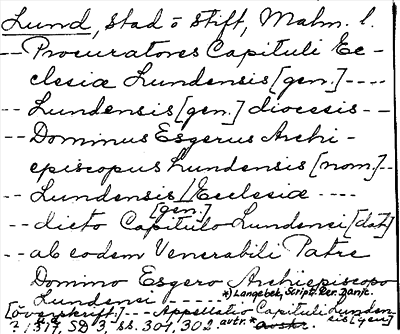 Lund, stad o stift, Malm. l.
-- Procuratores Capituli Ec-
clesiæ Lundensis [gen.] ----
-- Lundensis [gen.] diocesis --
-- Dominus Esgerus Archi-
episcopus Lundensis [nom.] --
-- Lundensis [gen.] Ecclesiæ ----
-- dicto Capitulo Lundensi [dat.]
-- ab eodem Venerabili Patre
Domino Esgero Archiepiscopo
Lundensi ----- *) Langebek, Script. Rer. Dan.
[överskrift:] -- Appellatio Capituli Lunden-
sis [gen.]
? 1317, SD 3, ss. 301, 302 avtr. *